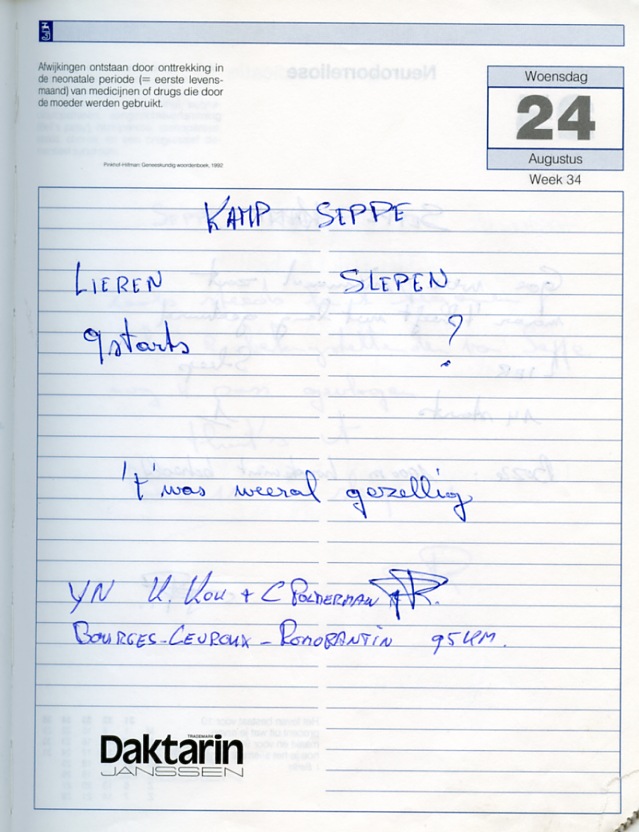 Afwijkingen ontstaan door onttrekking in
de neonatale periode (= eerste levens-
maand) van medicijnen of drugs die door
de moeder werden gebruikt.
Pinkhof-Hilfman: Geneeskundig woordenboek, 1992
Woensdag
24
Augustus
Week 34
KAMP SEPPE
LIEREN SLEPEN
9 starts ?
't' was weeral gezellig
YN K. KOU + C POLDERMAN
BOURGES-CEUROUX-ROMORANTIN 95KM.
TRADEMARK
Daktarin
JANSSEN